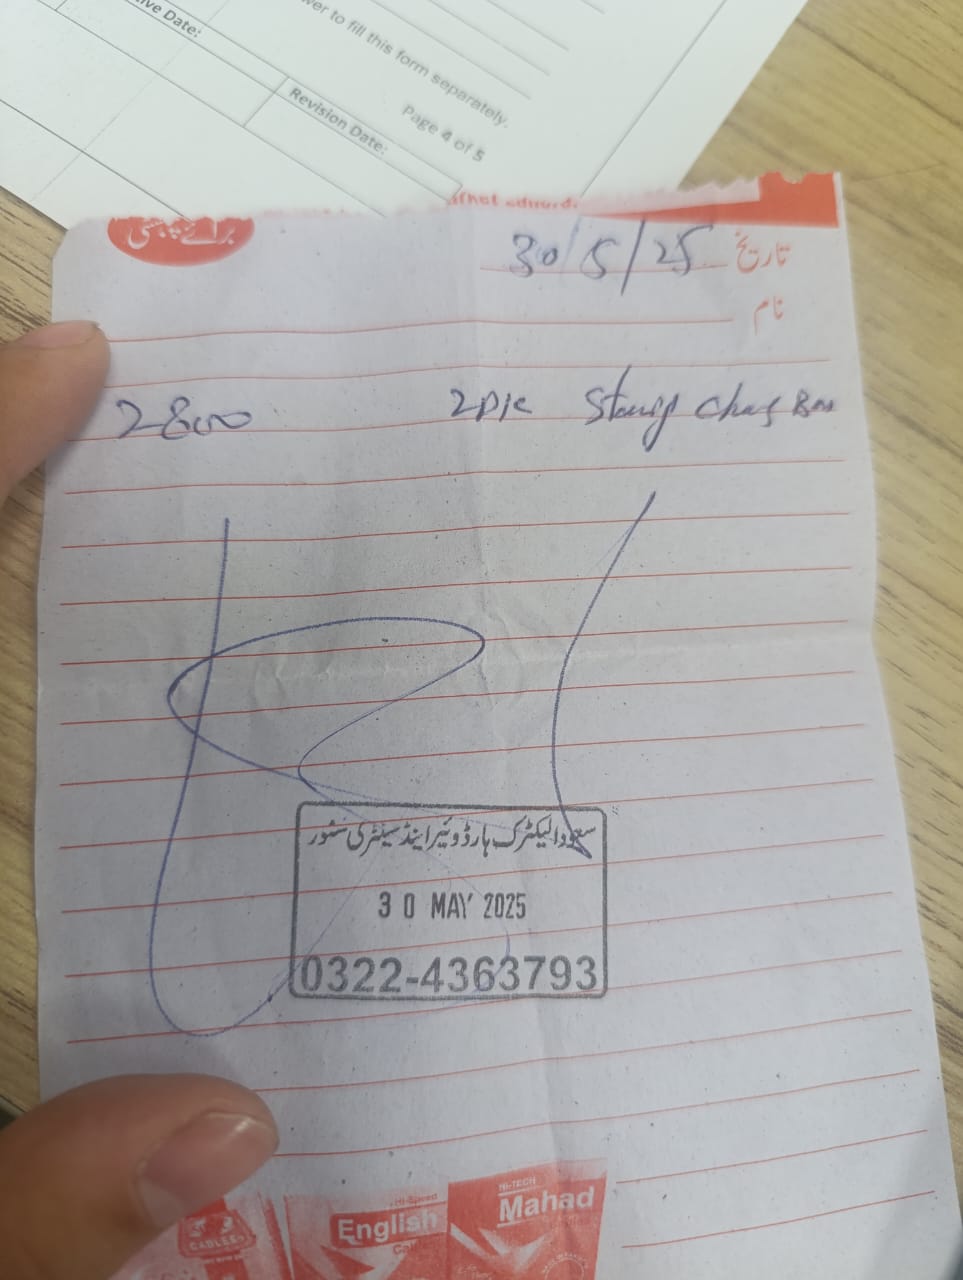 ive Date:
wer to fill this form separately.
Revision Date:
Page 4 of 5
برائے چوبنگی
تاریخ 30/5/25
نام
2800 2 Pic
سعود الیکٹرک ہارڈ وئیر اینڈ سینٹری سٹور
30 MAY 2025
0322-4363793
CABLES
Hi-Speed
English
HI-TECH
Mahad